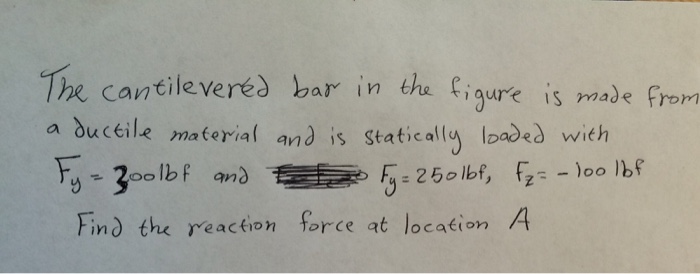 The cantilevered bar in the figure is made from
a ductile material and is statically loaded with
Fy = 300lbf and Fy = 250lbf, Fz = -100 lbf
Find the reaction force at location A